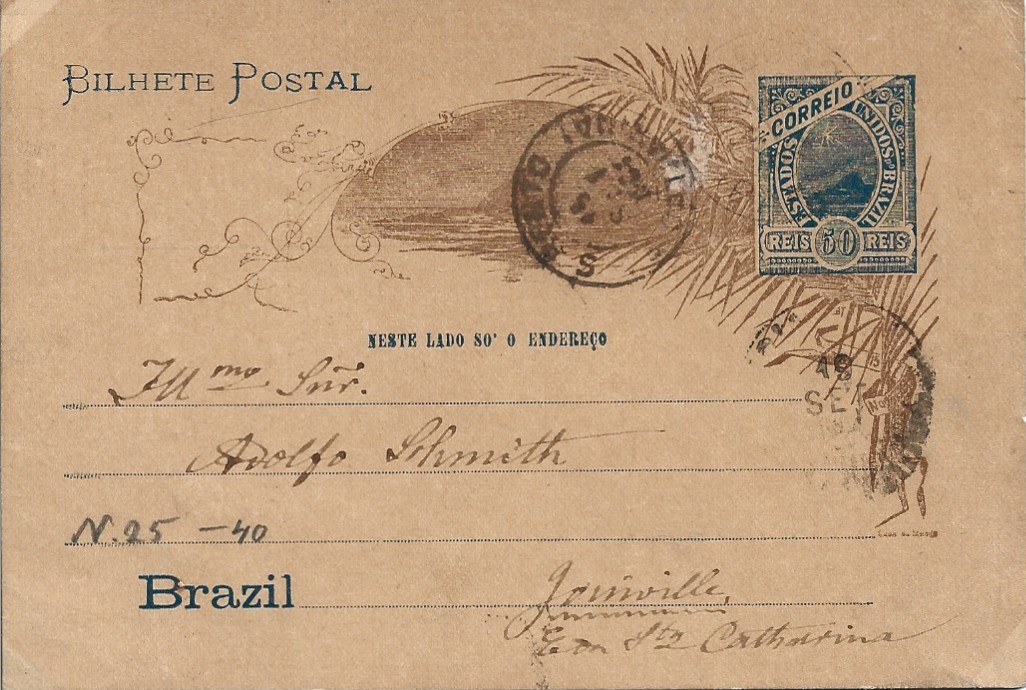 BILHETE POSTAL
CORREIO
ESTADOS UNIDOS DO BRAZIL
REIS 50 REIS
S. BENTO
NESTE LADO SO' O ENDEREÇO
19
SET
Ill mo Snr.
Adolfo Schmith
N. 25 - 40
Brazil
Joinville,
Sta Catharina